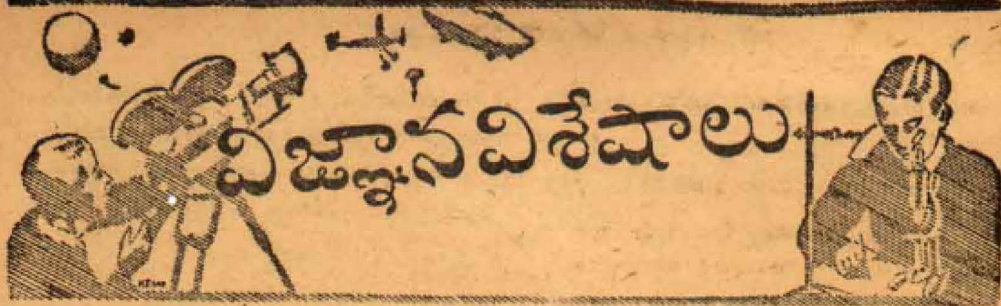 విజ్ఞాన విశేషాలు